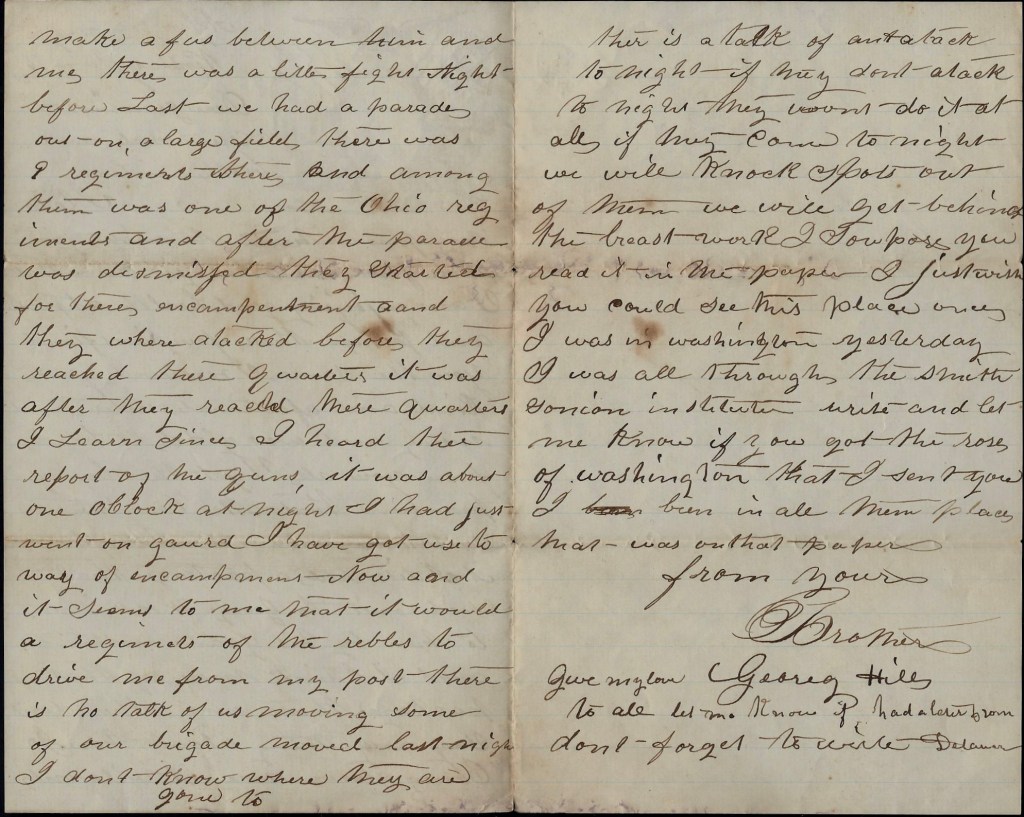 make a fus between him and
me there was a litte fight Night
before Last we had a parade
out on a large field there was
9 regiments there and among
them was one of the Ohio reg
iments and after the parade
was dismissed they started
for there encampentment aand
they where atacked before they
reached there quarters it was
after they reached there quarters
I Learn Since I heard thee
report of the guns it was about
one Oblock at night I had just
went on gaurd I have got use to
way of encampment Now aand
it seems to me that it would
a regiments of the rebles to
drive me from my post there
is no talk of us moving some
of our brigade moved last nigh
I dont know where they are
gone to
ther is a talk of an atack
to night if they dont atack
to night they wount do it at
all if they come to night
we will Knock Spots out
of them we will get behind
the breast work I Sowpose you
read it in the paper I just wish
you could see this place once
I was in washington yesterday
I was all through the smith
sonion institute write and let
me Know if you got the rose
of washington that I sent you
I been in all them places
that was on that paper
from your
Brother
Give my love Georeg Hiles
to all let me Know if had a leter from
dont forget to write Delawer